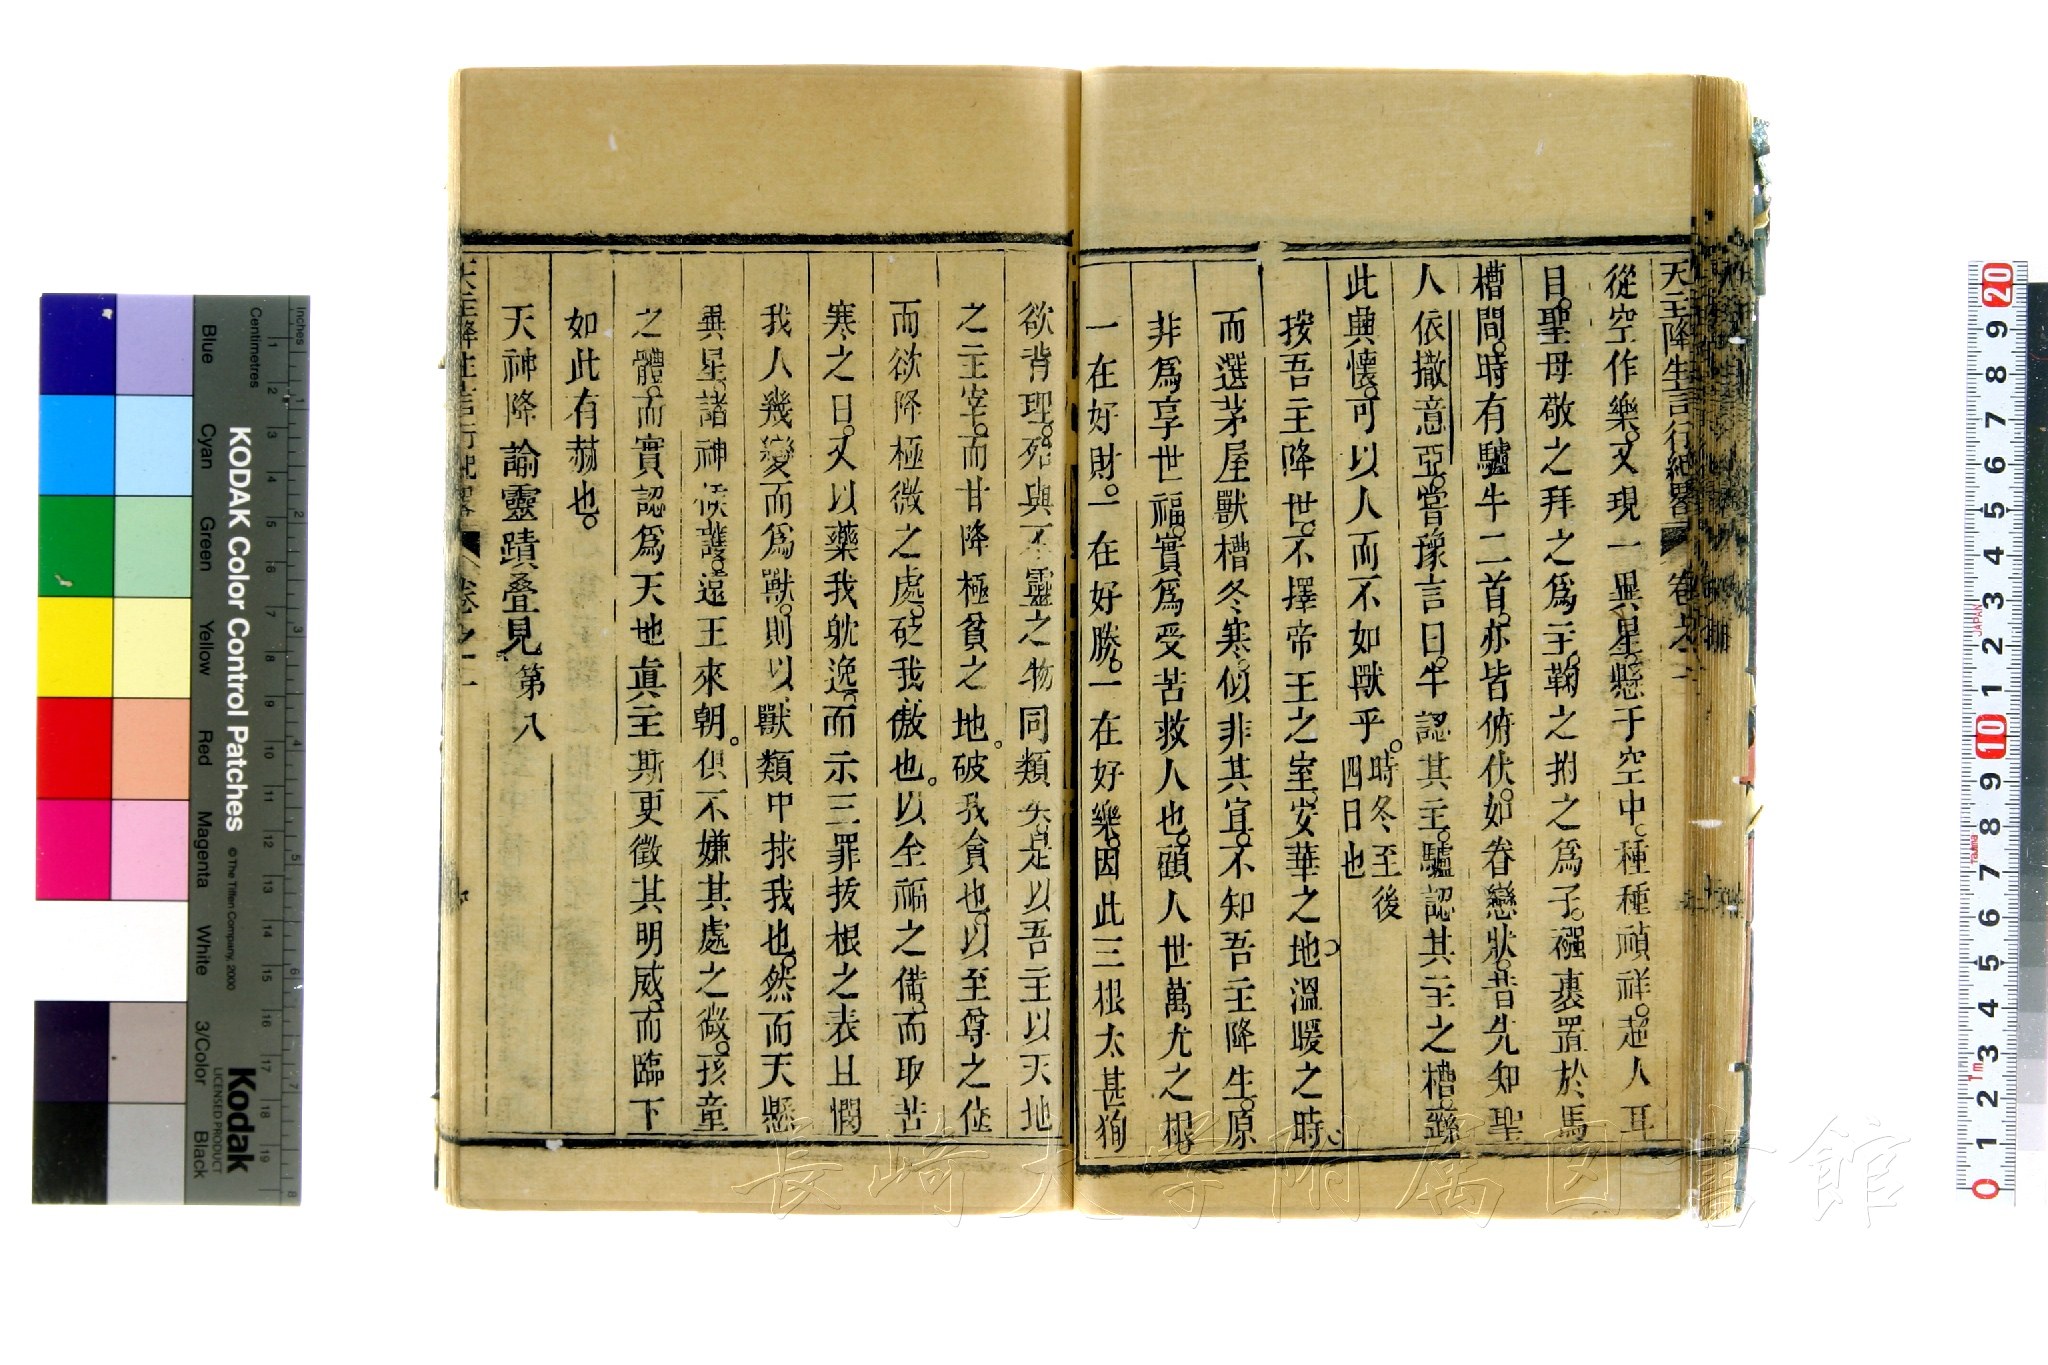 天主降生言行紀畧 卷之一
從空作樂。又現一異星。懸于空中。種種禎祥。超人耳
目。聖母敬之拜之爲主。鞠之拊之爲子。襁裹置於馬
槽間。時有驢牛二首。亦皆俯伏。如眷戀狀。昔先知聖
人依撒意亞。嘗豫言曰。牛認其主。驢認其主之槽。繇
此興懷。可以人而不如獸乎。時冬至後
四日也
按吾主降世。不擇帝王之室。安華之地。溫暖之時。
而選茅屋獸槽冬寒。似非其宜。不知吾主降生。原
非爲享世福。實爲受苦救人也。顧人世萬尤之根。
一在好財。一在好勝。一在好樂。因此三根太甚狥
欲背理。殆與不靈之物同類矣。是以吾主以天地
之主宰。而甘降極貧之地。破我貪也。以至尊之位
而欲降極微之處。砭我傲也。以全福之備。而取苦
寒之日。又以藥我躭逸。而示三罪拔根之表。且憫
我人幾變而爲獸。則以獸類中拯我也。然而天懸
異星。諸神候護。遠王來朝。俱不嫌其處之微。孩童
之體。而實認爲天地眞主。斯更徵其明威。而臨下
如此有赫也。
天神降諭靈蹟叠見第八
天主降生言行紀畧 卷之一
KODAK Color Control Patches
© The Tiffen Company, 2000
Kodak
LICENSED PRODUCT
Inches
Centimetres
Blue
Cyan
Green
Yellow
Red
Magenta
White
3/Color
Black
JAPAN
Tajima
1m
長崎大学附属図書館